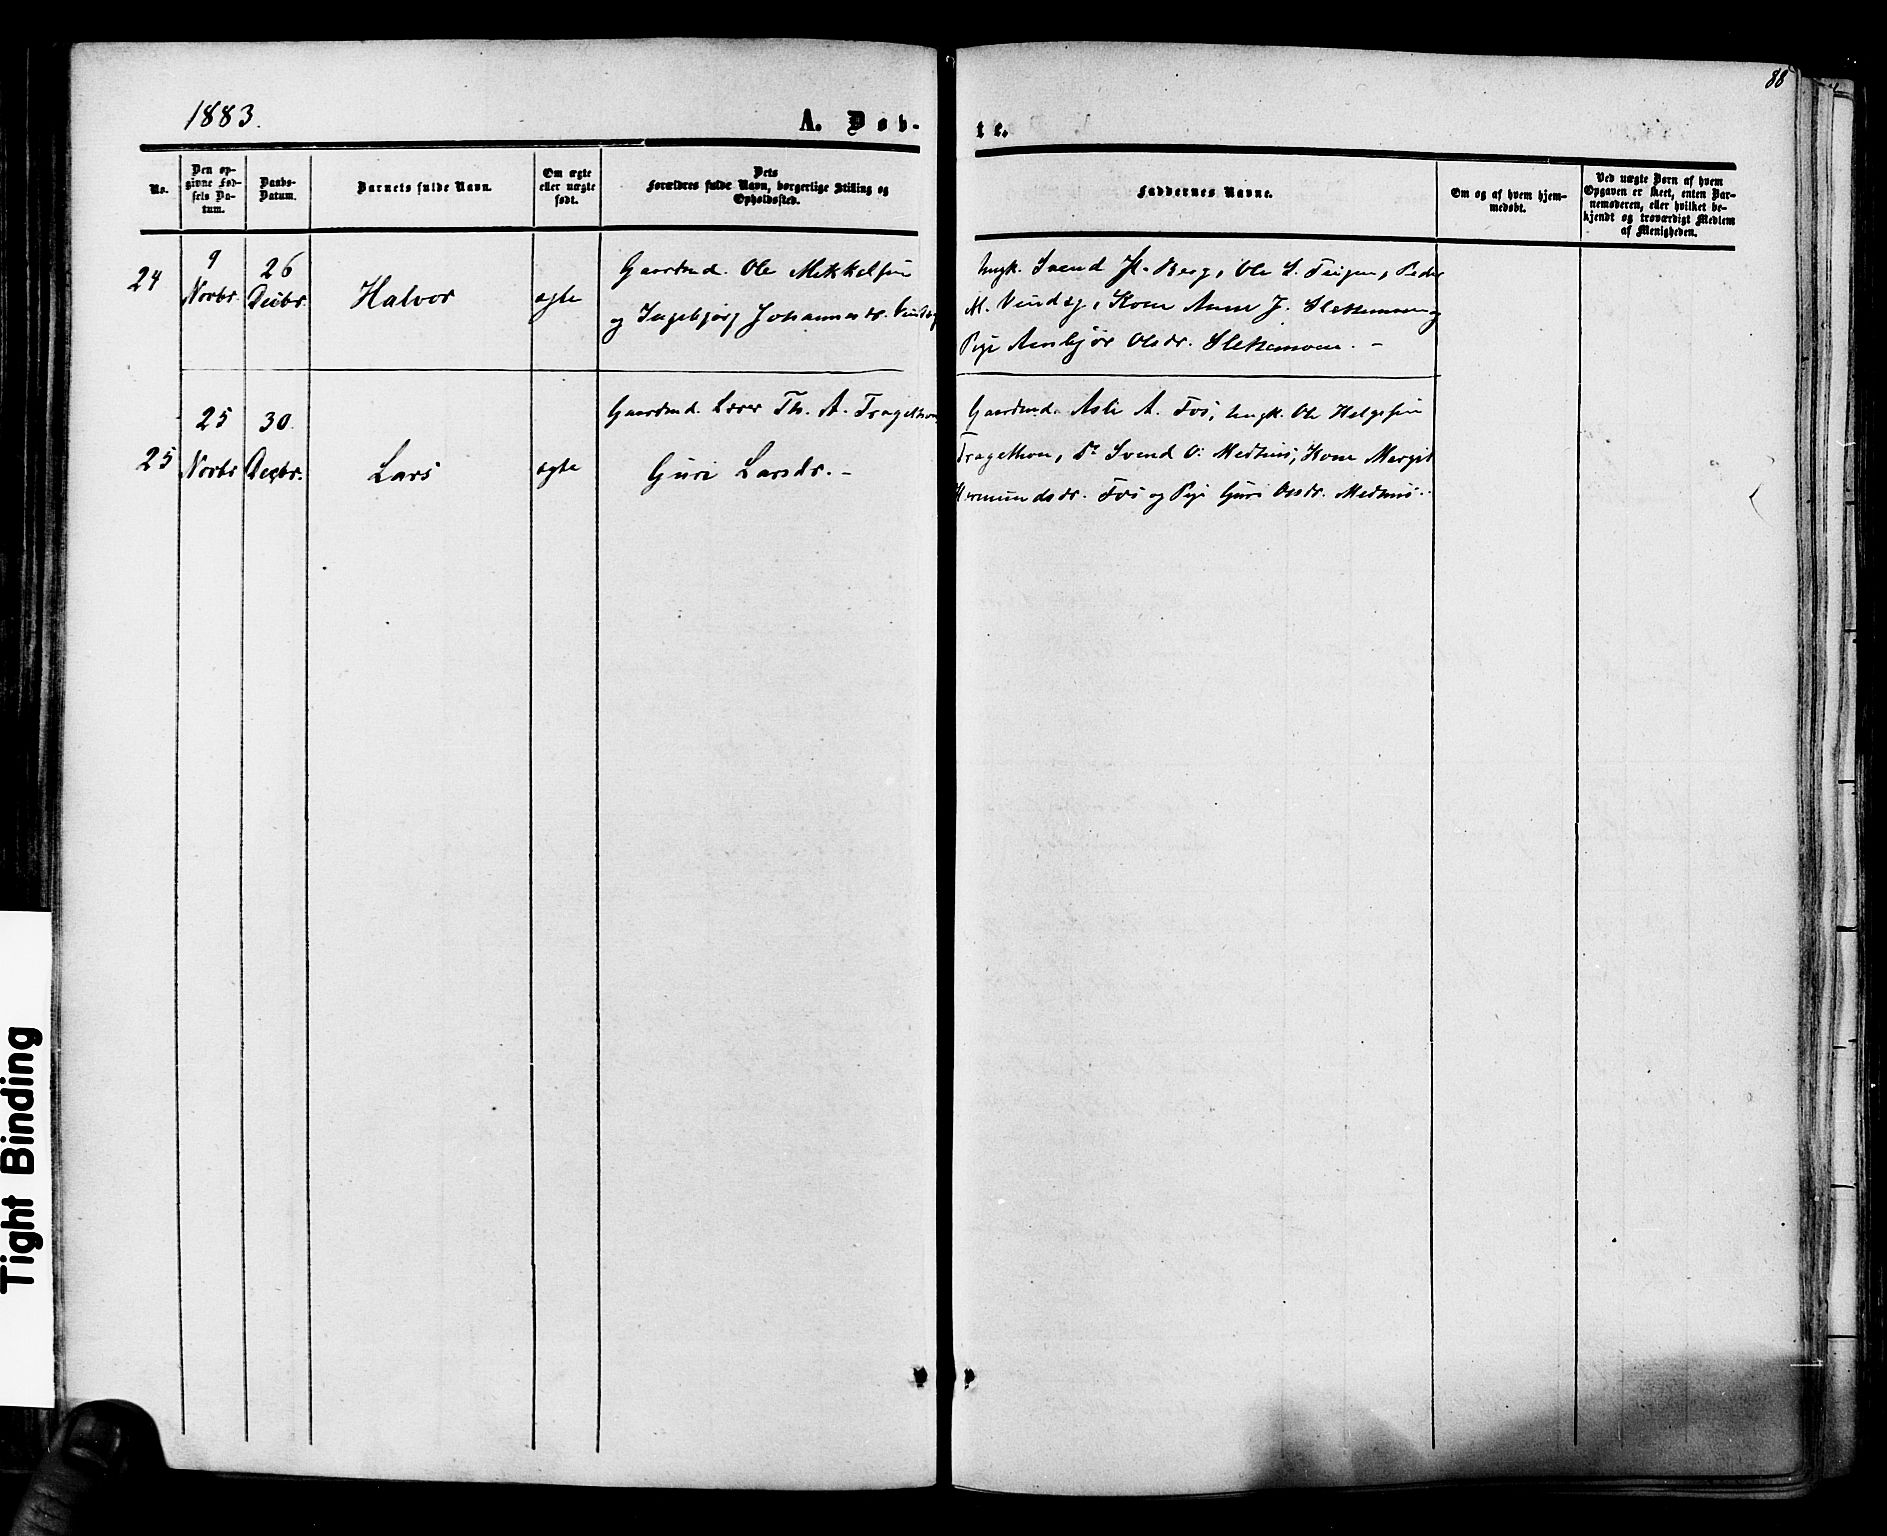 88
1883.
A. Døb-
te.
No.
Den op-
givne Fød-
sels Da-
tum.
Daabs-
Datum.
Barnets fulde Navn.
Om ægte
eller uægte
født.
Dets
Forældres fulde Navn, borgerlige Stilling og
Opholdssted.
Faddernes Navne.
Om og af hvem hjem-
medøbt.
Ved uægte Børn af hvem
Opgaven er skeet, enten Bar-
nemoderen, eller hvilket be-
kjendt og troværdigt Medlem
af Menigheden.
24
9
Novbr
26
Decbr.
Halvor
ægte
Gaardmd. Ole Mikkelsen
og Ingebjørg Johannesdr.
Ungk. Svend H. Berg, Ole S. Teigen, Peder
M. Vindeg, Kone Anne J. Slettemoen og
Pige Ansbjør Olsdr. Slettemoen. -
25
25
Novbr
30.
Decbr.
Lars
ægte
Gaardmd. Lærer Th. A. Tragethon,
Guri Larsdr. -
Gaardmd. Asle A. Fos, Ungk. Ole Helgesen
Tragethon, Do Svend O. Medhus, Kone Margit
Hermundsdr. Fos og Pige Guri Olsdr. Medhus. -
Tight Binding